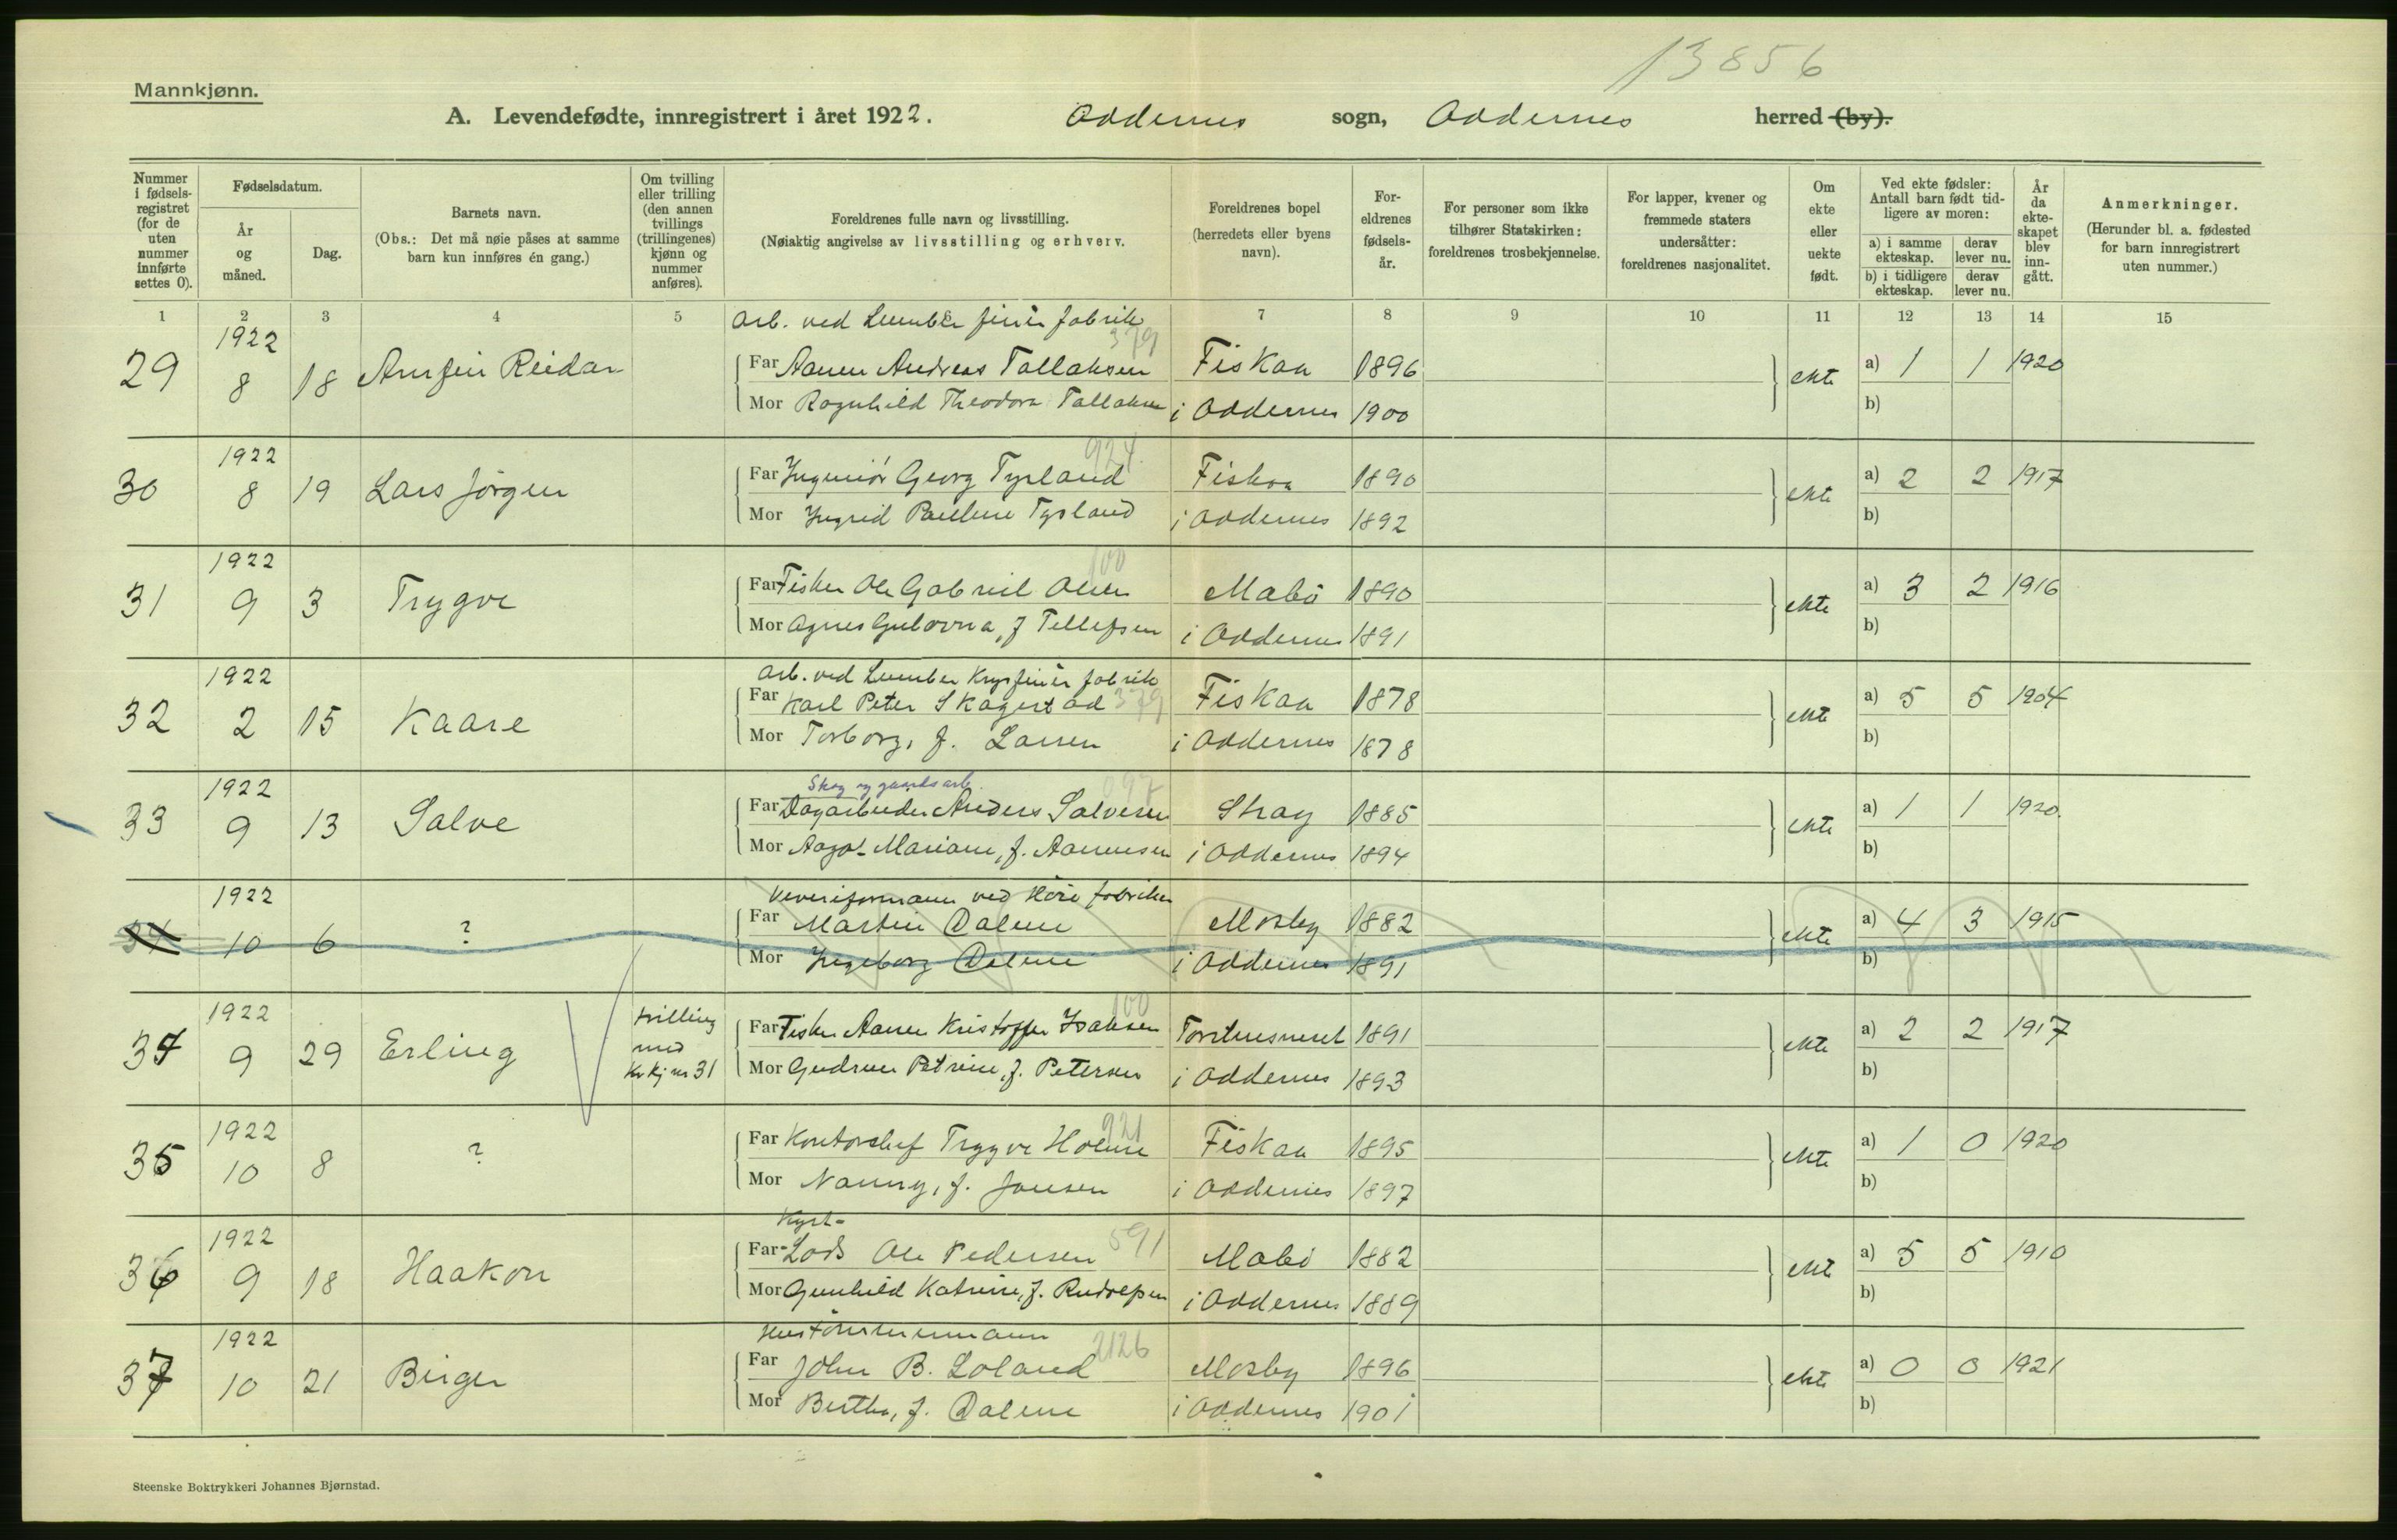 13856
Mannkjønn.
A. Levendefødte, innregistrert i året 1922. Oddernes sogn, Oddernes herred (by).
Nummer i fødselsregistret (for de uten nummer innførte settes 0).
Fødselsdatum.
År og måned.
Dag.
Barnets navn.
(Obs.: Det må nøie påses at samme barn kun innføres én gang.)
Om tvilling eller trilling (den annen tvillings (trillingenes) kjønn og nummer anføres).
Foreldrenes fulle navn og livsstilling.
(Nøiaktig angivelse av livsstilling og erhverv.
Foreldrenes bopel (herredets eller byens navn).
Foreldrenes fødselsår.
For personer som ikke tilhører Statskirken: foreldrenes trosbekjennelse.
For lapper, kvener og fremmede staters undersåtter: foreldrenes nasjonalitet.
Om ekte eller uekte født.
Ved ekte fødsler: Antall barn født tidligere av moren:
a) i samme ekteskap.
derav lever nu.
b) i tidligere ekteskap.
derav lever nu.
År da ekteskapet blev inngått.
Anmerkninger.
(Herunder bl. a. fødested for barn innregistrert uten nummer.)
1 2 3 4 5 7 8 9 10 11 12 13 14 15
Arb. ved Lumber finér fabrik
379
29 1922 8 18 Arnfin Reidar Far Aanen Andreas Tallaksen Fiskaa 1896 ekte a) 1 1 1920
Mor Ragnhild Theodora Tallaksen i Oddernes 1900 b)
924
30 1922 8 19 Lars Jörgen Far Ingeniör Georg Tysland Fiskaa 1890 ekte a) 2 2 1917
Mor Ingrid Pauline Tysland i Oddernes 1892 b)
100
31 1922 9 3 Trygve Far Fisker Ole Gabriel Olsen Mabö 1890 ekte a) 3 2 1916
Mor Agnes Gulovna, f Tellefsen i Oddernes 1891 b)
Arb. ved Lumber Krysfinér fabrik
32 1922 2 15 Kaare Far Karl Peter Skagestad 379 Fiskaa 1878 ekte a) 5 5 1904
Mor Torborg, f. Larsen i Oddernes 1878 b)
Skog og gaardsarb. 097
33 1922 9 13 Salve Far Dagarbeider Anders Salvesen Strag 1885 ekte a) 1 1 1920.
Mor Aagot Mariane, f. Aanensen i Oddernes 1894 b)
Veveriformann ved Höie fabriker
34 1922 10 6 ? Far Martin Dalene Mosby 1882 ekte a) 4 3 1915
Mor Ingeborg Dalene i Oddernes 1891 b)
100
34 1922 9 29 Erling tvilling med Kv kj nr 31 Far Fisker Aanen Kristoffer Isaksen 1891 ekte a) 2 2 1917
Mor Gudrun Petrine, f. Petersen i Oddernes 1893 b)
921
35 1922 10 8 ? Far Kontorchef Trygve Holme Fiskaa 1895 ekte a) 1 0 1920
Mor Nanny, f. Jensen i Oddernes 1897 b)
Kyst-
36 1922 9 18 Haakon Far Lods Ole Pedersen 591 Mabö 1882 ekte a) 5 5 1910
Mor Gunhild Katrine, f. Rudolfsen i Oddernes 1889 b)
2126
37 1922 10 21 Birger Far John B. Loland Mosby 1896 ekte a) 0 0 1921
Mor Bertha, f. Dalene i Oddernes 1901 b)
Steenske Boktrykkeri Johannes Bjørnstad.